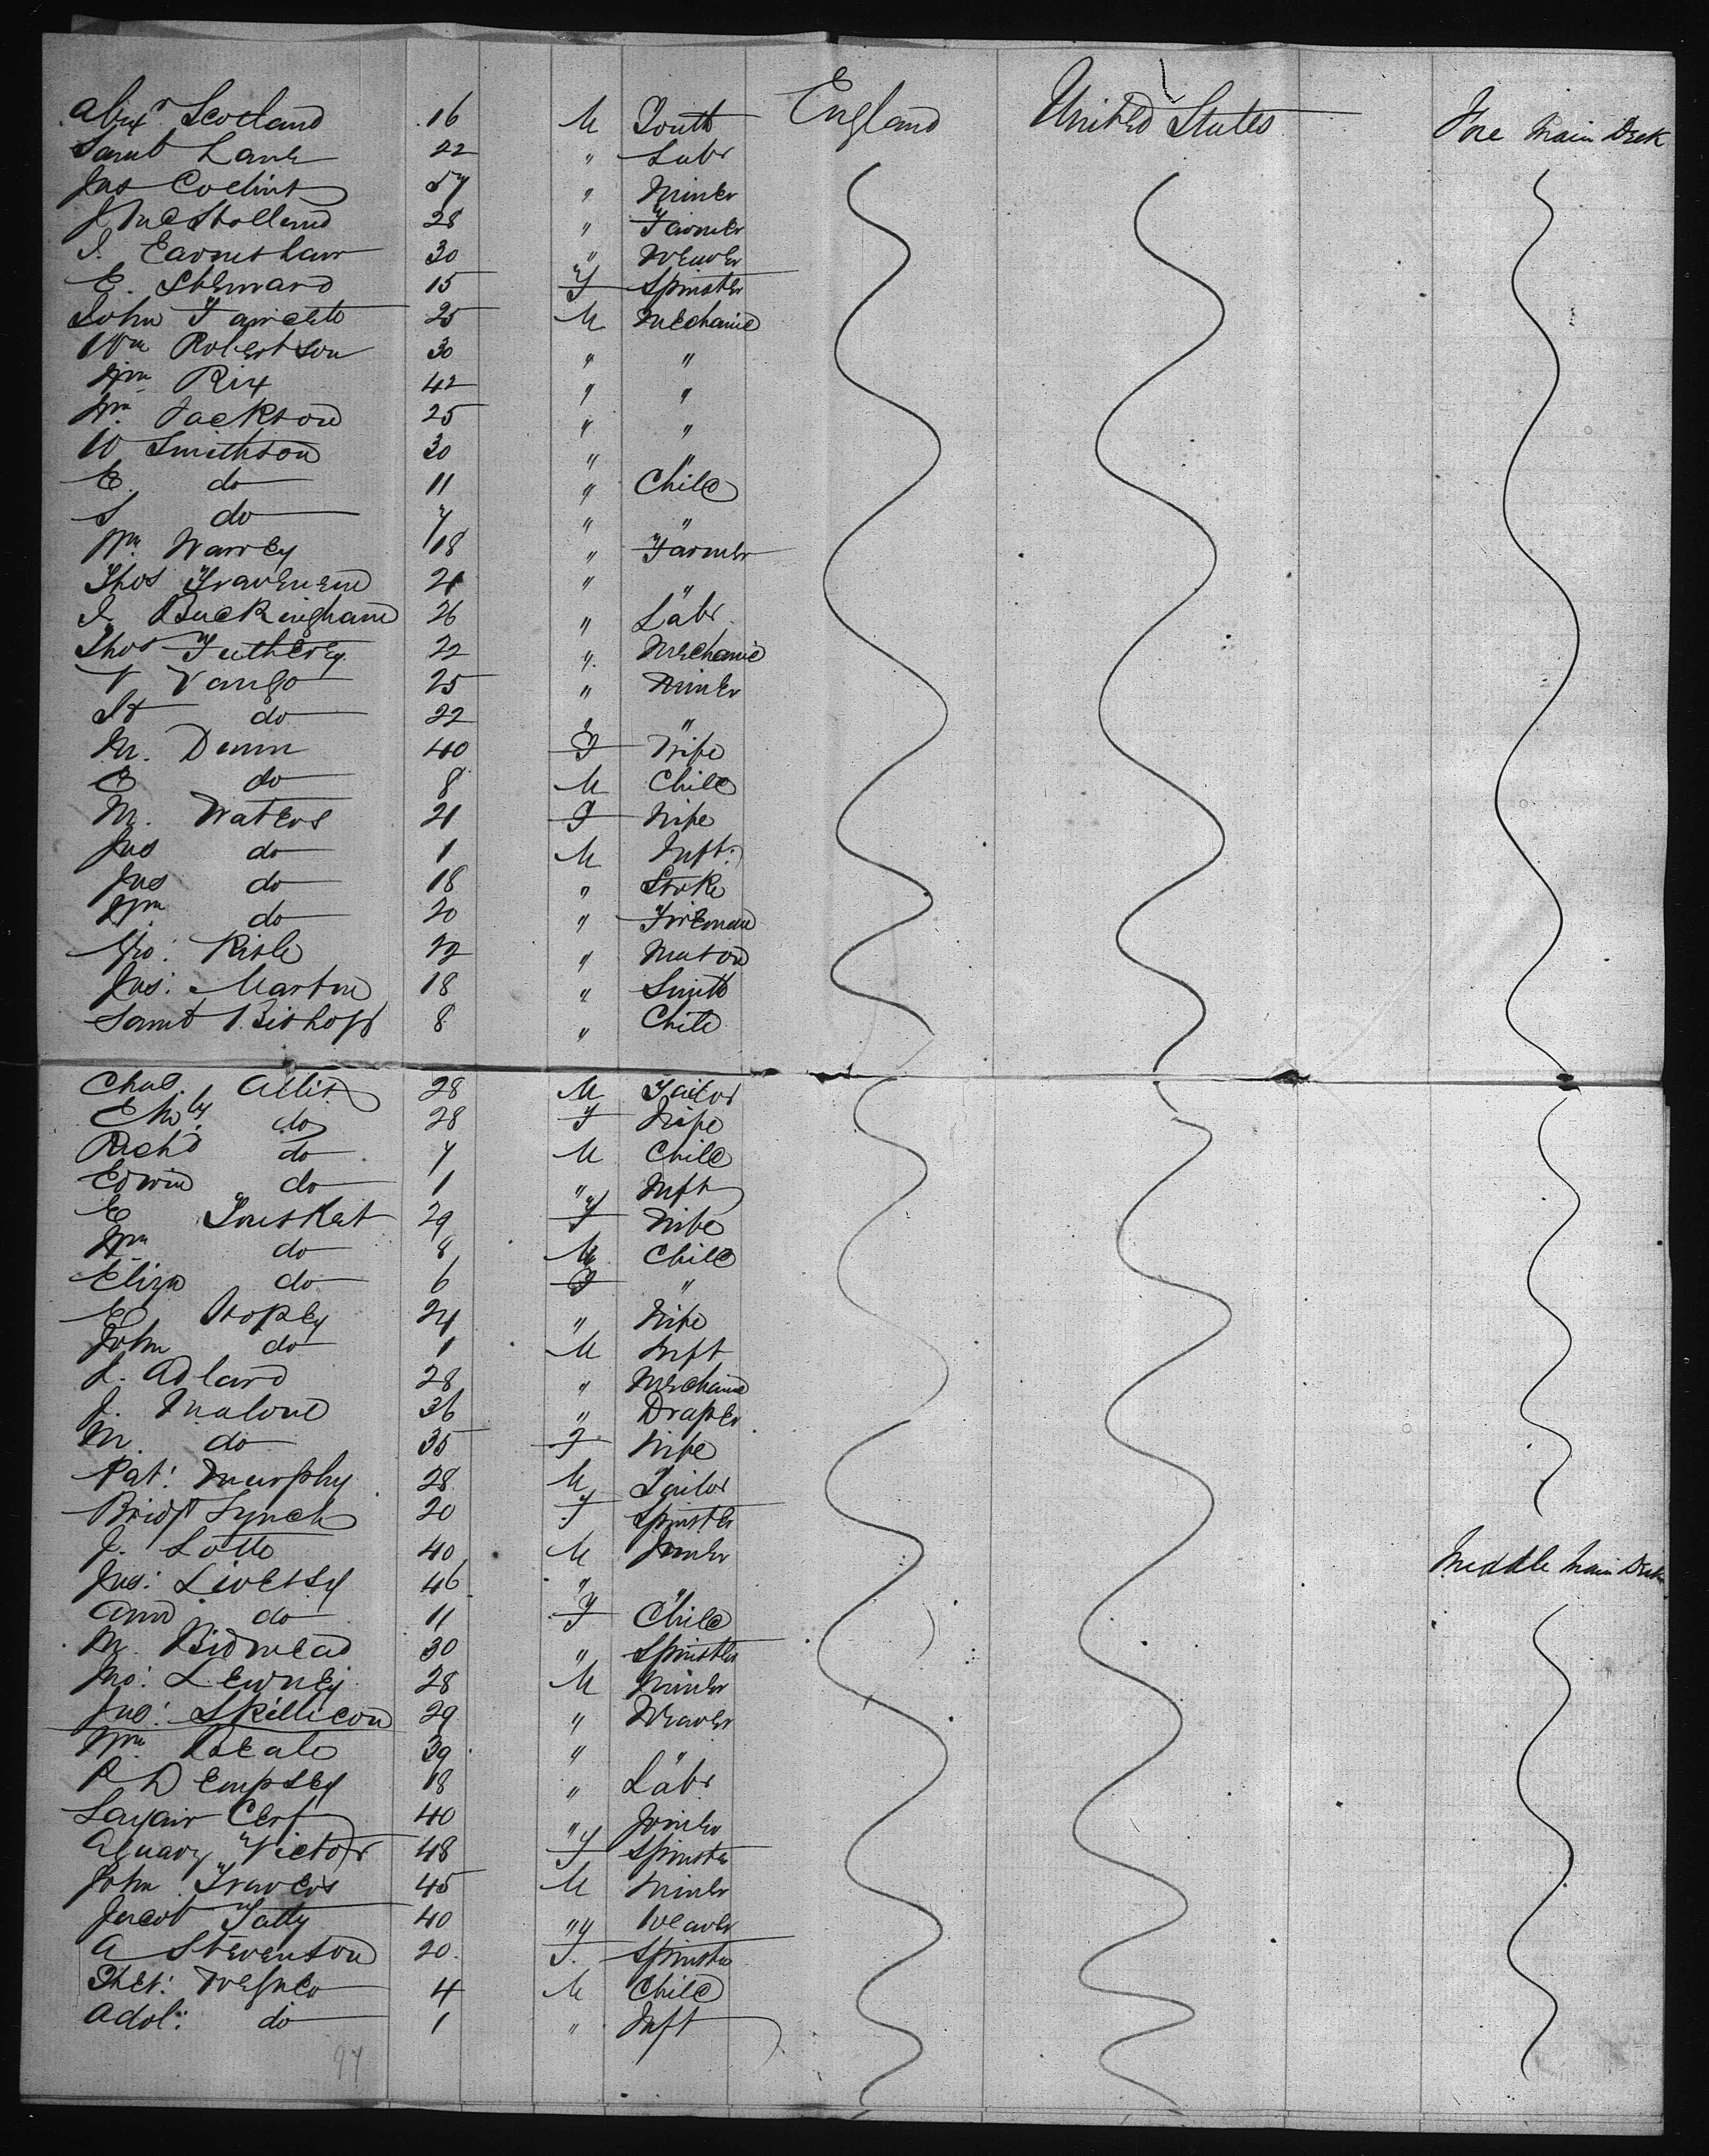 Alexr Scotland 16 M South England United States Fore Main Deck
Saml Lane 22 " Labr
Jas Collins 57 " Miner
J McHolland 28 " Farmer
J. Earnshaw 30 " Weaver
E. Steward 15 F Spinster
John Fawcett 25 M Mechanic
Wm Robertson 30 " "
Wm Rix 42 " "
Wm Jackson 25 " "
W Smithson 30 " "
E. do 11 " Child
S do 7 " "
Wm Warrey 18 " Farmer
Thos 21 " "
J. Buckingham 26 " Labr.
Thos Futhery 22 " Mechanic
V Vango 25 " Miner
do 22 " "
M. Dunn 40 F Wife
E do 8 M Child
M. Waters 21 F Wife
Jas do 1 M Inft:
Jas do 18 "
Wm do 20 " Fireman
22 " Mason
Jas: Martin 18 " Smith
Saml Bishop 8 " Child
Chas. Allis 28 M Tailor
do 28 F Wife
Richd do 7 M Child
Edwin do 1 " Inft
E 29 F Wife
Wm do 8 M Child
Eliza do 6 F "
E Hopley 24 " Wife
John do 1 M Inft
J. Adlard 28 " Mechanic
J. Malone 36 " Draper
M. do 35 F Wife
Pat: Murphy 28 M Tailor
Bridgt Lynch 20 F Spinster
J. Lotte 40 M Joiner
Jas: Livesey 46 " "
Ann do 11 F Child Middle Main Deck
M. Bidmead 30 " Spinster
Jno: Lewney 28 M Miner
Jas: Skillicon 29 " Weaver
Wm Beale 39 " "
P Dempsey 18 " Labr
Cerf 40 " Joiner
Victor 48 F Spinster
John Travers 45 M Miner
Jacob Tatty 40 " Weaver
A Stevenson 20 F. Spinster
4 M Child
Adol: do 1 " Inft
97